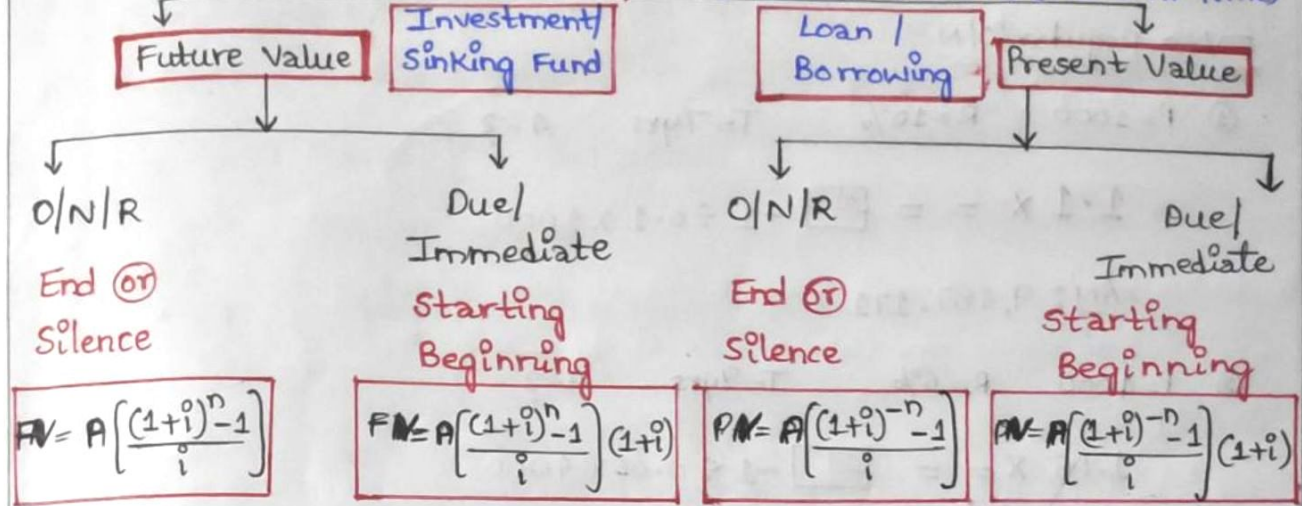 Future Value
Investment/
Sinking Fund
Loan /
Borrowing
Present Value
O/N/R
End or
Silence
FV= A[((1+i)^n-1)/i]
Due/
Immediate
Starting
Beginning
FV=A[((1+i)^n-1)/i](1+i)
O/N/R
End or
Silence
PV= A[((1+i)^-n-1)/i]
Due/
Immediate
Starting
Beginning
PV=A[((1+i)^-n-1)/i](1+i)